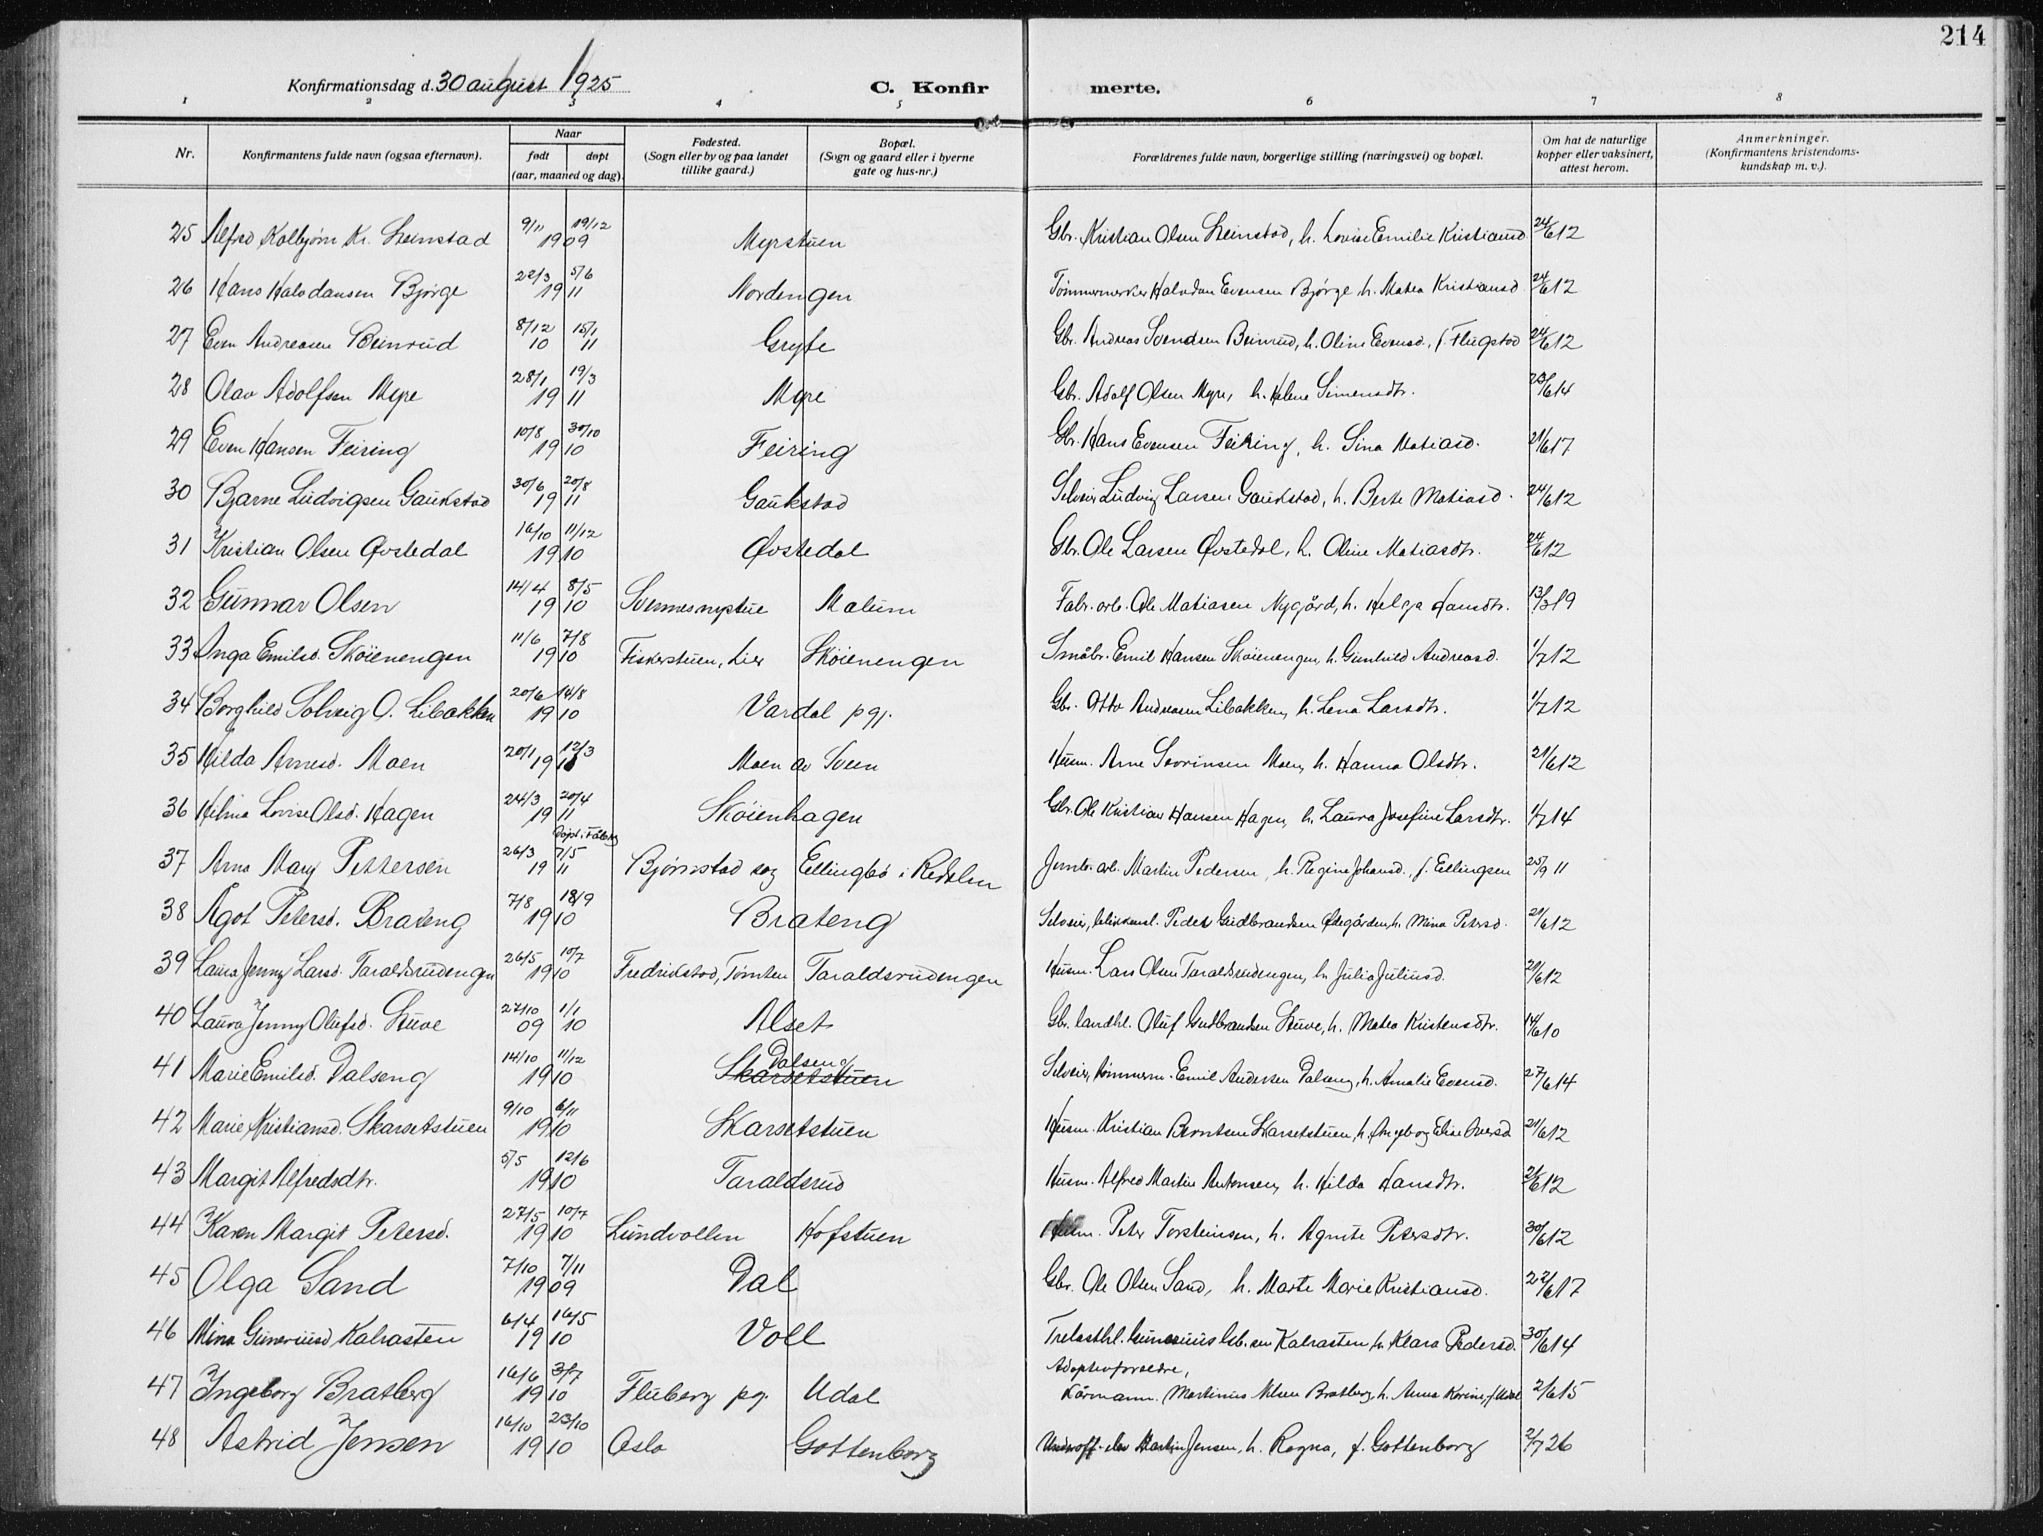 214
Konfirmationsdag d. 30 august 1925 C. Konfir merte.
1 2 3 4 5 6 7 8
Nr. Konfirmantens fulde navn (ogsaa efternavn). Naar født døpt (aar, maaned og dag). Fødested. (Sogn eller by og paa landet tillike gaard.) Bopæl. (Sogn og gaard eller i byerne gate og hus-nr.) Forældrenes fulde navn, borgerlige stilling (næringsvei) og bopæl. Om hat de naturlige kopper eller vaksinert, attest herom. Anmerkninger. (Konfirmantens kristendoms-kundskap m. v.).
25 Alfred Kolbjørn Kr. Steinstad 9/11 19/12 1909 Myrstuen Gbr. Kristian Olsen Steinstad, h. Lovise Emilie Kristiansd 24/6 12
26 Hans Halvdansen Bjørge 22/3 5/6 1911 Nordengen Tømmermerker Halvdan Evensen Bjørge, h. Matea Kristiansd. 24/6 12
27 Even Andreasen Beinrud 8/12 10 15/1 11 Gryte Gbr. Andreas Svendsen Beinrud, h. Oline Evensd., f. Flugstad 24/6 12
28 Olav Adolfsen Myre 28/1 19/3 1911 Myre Gbr. Adolf Olsen Myre, h. Helene Simensdtr. 23/6 14
29 Even Hansen Feiring 10/8 30/10 1910 Feiring Gbr. Hans Evensen Feiring, h. Sina Matiasd. 21/6 17
30 Bjarne Ludvigsen Gaukstad 30/6 20/8 1911 Gaukstad Selveier Ludvig Larsen Gaukstad, h. Berte Matiasd. 24/6 12
31 Kristian Olsen Øvstedal 16/10 11/12 1910 Øvstedal Gbr. Ole Larsen Øvstedal, h. Oline Matiasdtr. 24/6 12
32 Gunnar Olsen 14/4 8/5 1910 Svennesmystue Malum Fabr. arb. Ole Matiasen Nygård, h. Helga Hansdtr. 13/3 19
33 Inga Emilsd. Skøienengen 11/6 7/8 1910 Fiskerstuen, Lier Skøienengen Småbr. Emil Hansen Skøienengen, h. Gunhild Andreasd. 1/7 12
34 Borghild Solveig O. Libakken 20/6 14/8 1910 Vardal pgj. Gbr. Otto Andreasen Libakken, h. Lena Larsdtr. 1/7 12
35 Hilda Arnesd. Moen 20/1 12/3 19 Moen av Sveen Husm. Arne Sevrinsen Moen, h. Hanna Olsdtr. 21/6 12
36 Helma Lovise Olsd. Hagen 24/3 20/4 1911 Skøienhagen Gbr. Ole Kristian Hansen Hagen, h. Laura Josefine Larsdtr. 1/7 14
37 Arna Mary Pettersen 26/3 Døpt i Fåberg 7/5 1911 Bjørnstad sog Ellingbø i Redalen Jernb. arb. Martin Pedersen, h. Regine Johansd., f. Ellingsen 25/9 11
38 Agot Petersd. Brateng 7/8 18/9 1910 Brateng Selveier, blikkensl. Peder Gudbrandsen Ødegården, h. Mina Petersd. 21/6 12
39 Laura Jenny Larsd. Taraldsrudengen 26/5 10/7 1910 Fredrikstad, Tomten Taraldsrudengen Husm. Lars Olsen Taraldsrudengen, h. Julia Juliusd. 21/6 12
40 Laura Jenny Olufsd. Stuve 27/10 09 1/1 10 Alset Gbr. landhl. Oluf Gudbrandsen Stuve, h. Matea Kristensdtr. 14/6 10
41 Marie Emilsd. Dalseng 14/10 11/12 1910 Dalseng Skarsetstuen Selveier, tømmerm. Emil Andersen Dalseng, h. Amalie Evensd. 27/6 14
42 Marie Kristiansd. Skarsetstuen 9/10 6/11 1910 Skarsetstuen Husm. Kristian Berntsen Skarsetstuen, h. Ingeborg Elise Iversd 21/6 12
43 Margit Alfredsdtr. 5/5 12/6 1910 Taraldsrud Husm. Alfred Martin Antonsen, h. Hilda Hansdtr. 21/6 12
44 Karen Margit Petersd. 27/5 10/7 1910 Lundvollen Hofstuen Husm. Peter Torsteinsen, h. Agnete Petersdtr. 30/6 12
45 Olga Sand 7/10 7/11 1909 Dal Gbr. Ole Olsen Sand, h. Marte Marie Kristiansd. 22/6 17
46 Mina Guneriusd Kalrasten 6/4 16/5 1910 Voll Trelasthl. Gunerius Gb.sen Kalrasten, h. Klara Pedersd. 30/6 14
Adoptivforeldre,
47 Ingeborg Bratberg 16/6 3/7 1910 Fluberg pgj. Udal Kårmann. Martinus Nilsen Bratberg, h. Anna Karine, f. Udal 2/6 15
48 Astrid Jensen 16/10 23/10 1910 Oslo Gottenborg Underoff. elev Martin Jensen, h. Ragna, f. Gottenborg 2/7 26